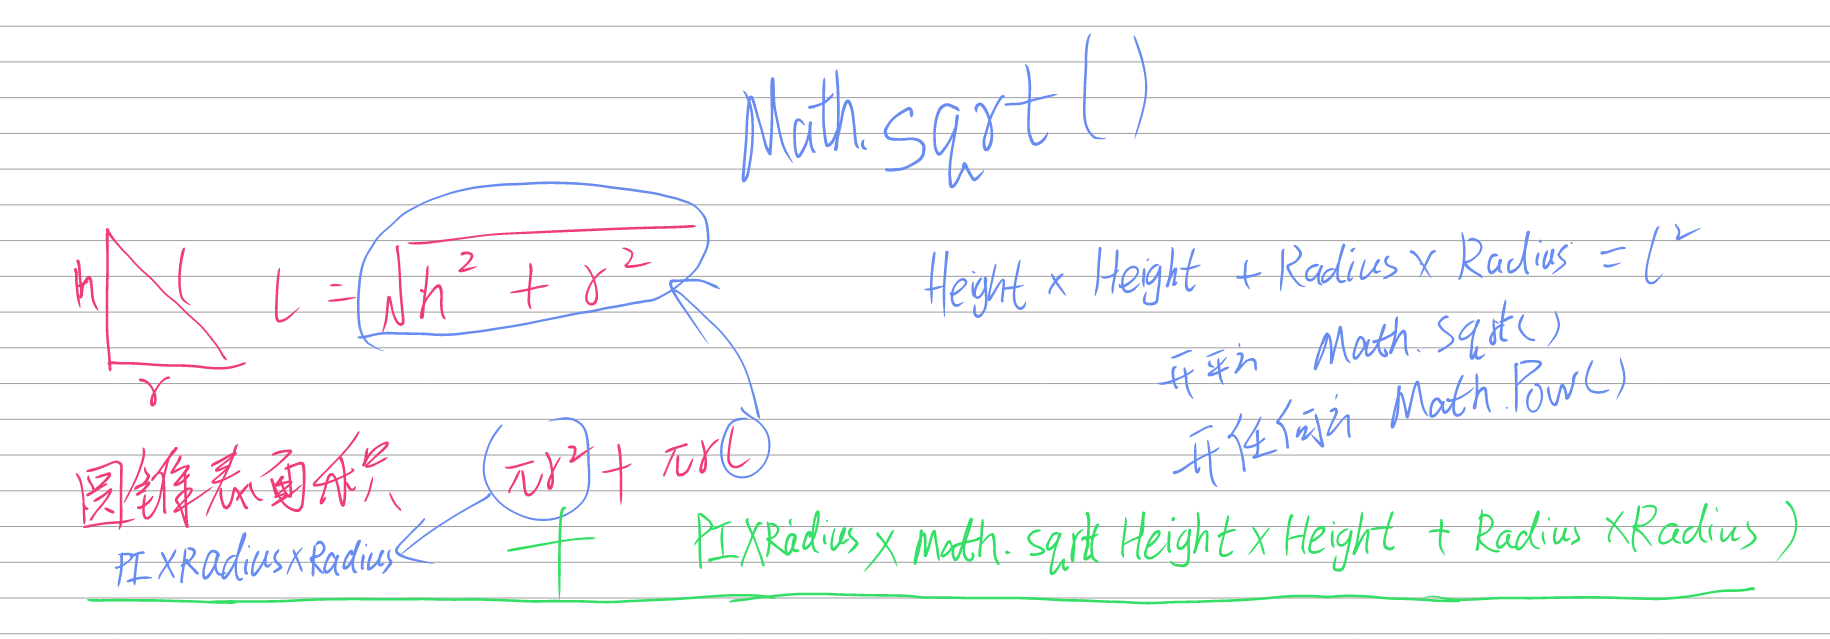 Math.sqrt()
h l l = √h² + r²
r
Height × Height + Radius × Radius = l²
开平方 Math.sqrt()
开任何方 Math.Pow()
圆锥表面积 πr² + πrl
PI×Radius×Radius + PI×Radius × Math.sqrt Height × Height + Radius ×Radius )